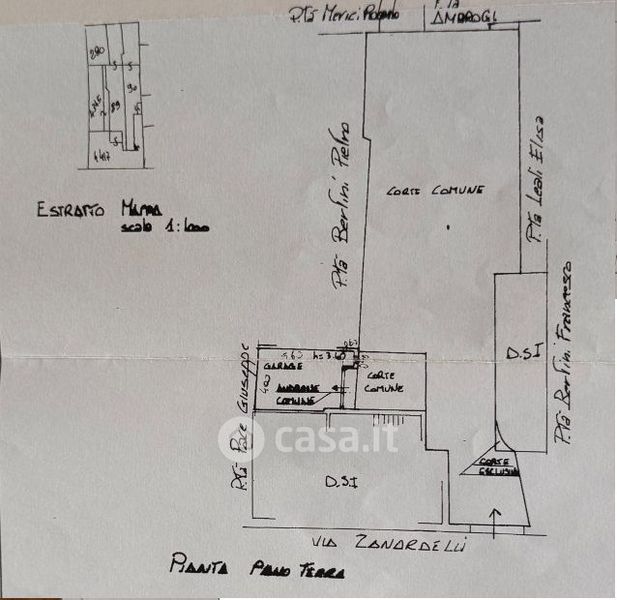 P.tà Merici Roberto
P.tà
AMBROGI
280
90
89
ESTRATTO MAPPA
scala 1:1000
P.tà Berlini Pietro
CORTE COMUNE
P.tà Leali Elisa
P.tà Berlini Francesco
D.S.I
P.tà Pace Giuseppe
5,63
hs 3.60
GARAGE
4,00
ANDRONE
COMUNE
CORTE
COMUNE
CORTE
ESCLUSIVA
D.S.I
casa.it
VIA ZANARDELLI
PIANTA PIANO TERRA